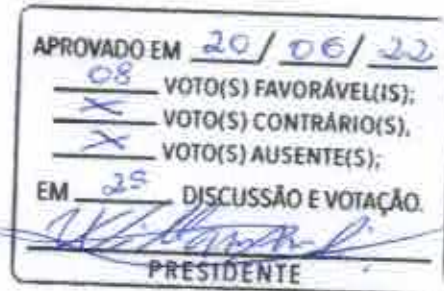 APROVADO EM 20 / 06 / 22
08 VOTO(S) FAVORÁVEL(IS);
X VOTO(S) CONTRÁRIO(S),
X VOTO(S) AUSENTE(S);
EM DISCUSSÃO E VOTAÇÃO.
PRESIDENTE